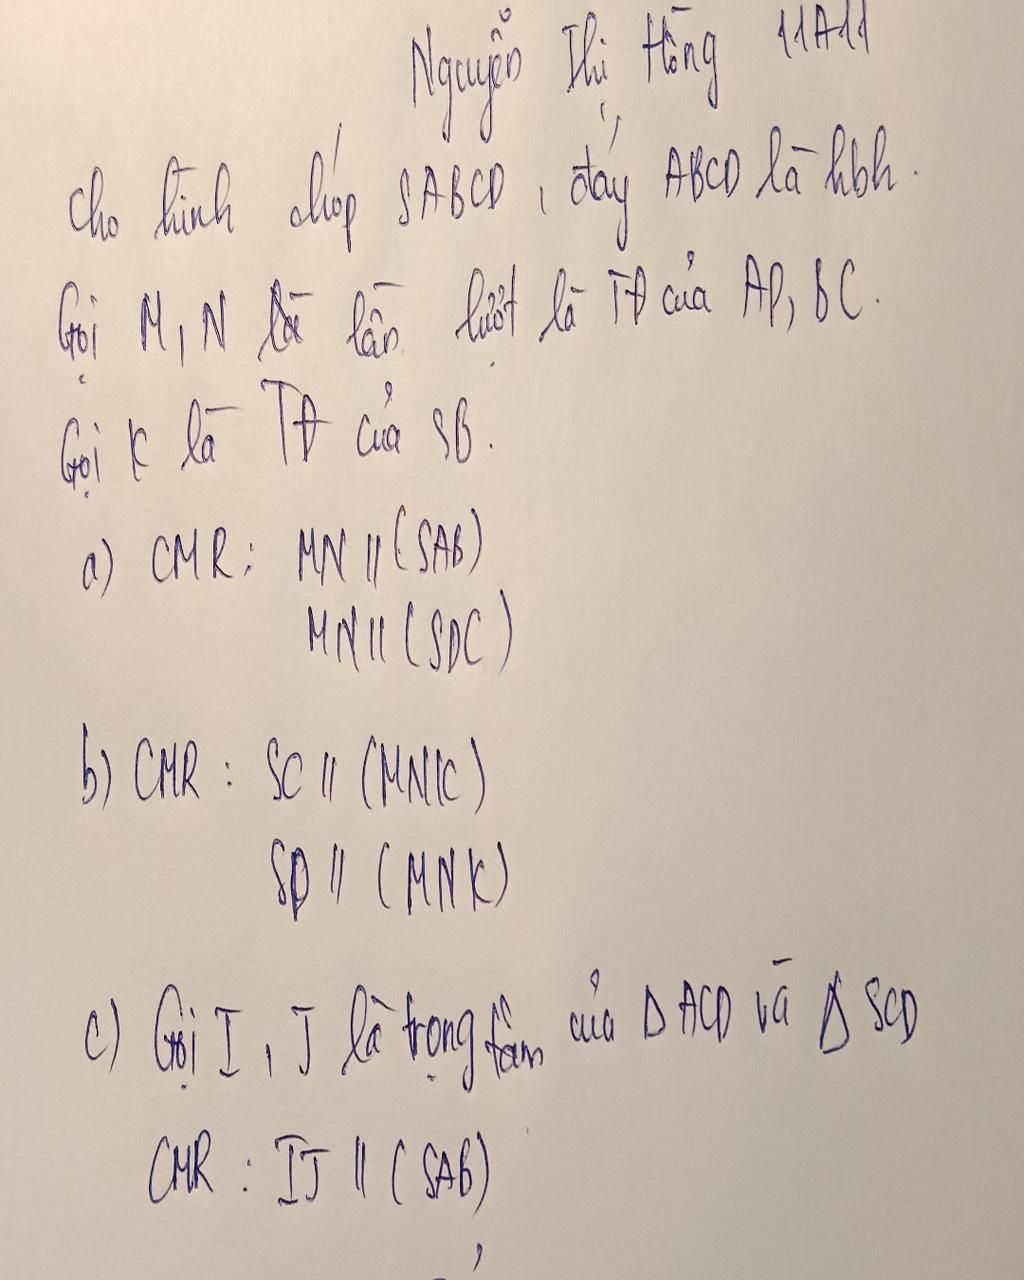 Nguyễn Thị Hồng 11A11
Cho hình chóp SABCD, đáy ABCD là hbh.
Gọi M, N lần lượt là TĐ của AD, BC.
Gọi K là TĐ của SB.
a) CMR: MN // (SAB)
MN // (SDC)
b) CMR: SC // (MNK)
SD // (MNK)
c) Gọi I, J là trọng tâm của Δ ACD và Δ SCD
CMR: IJ // (SAB)